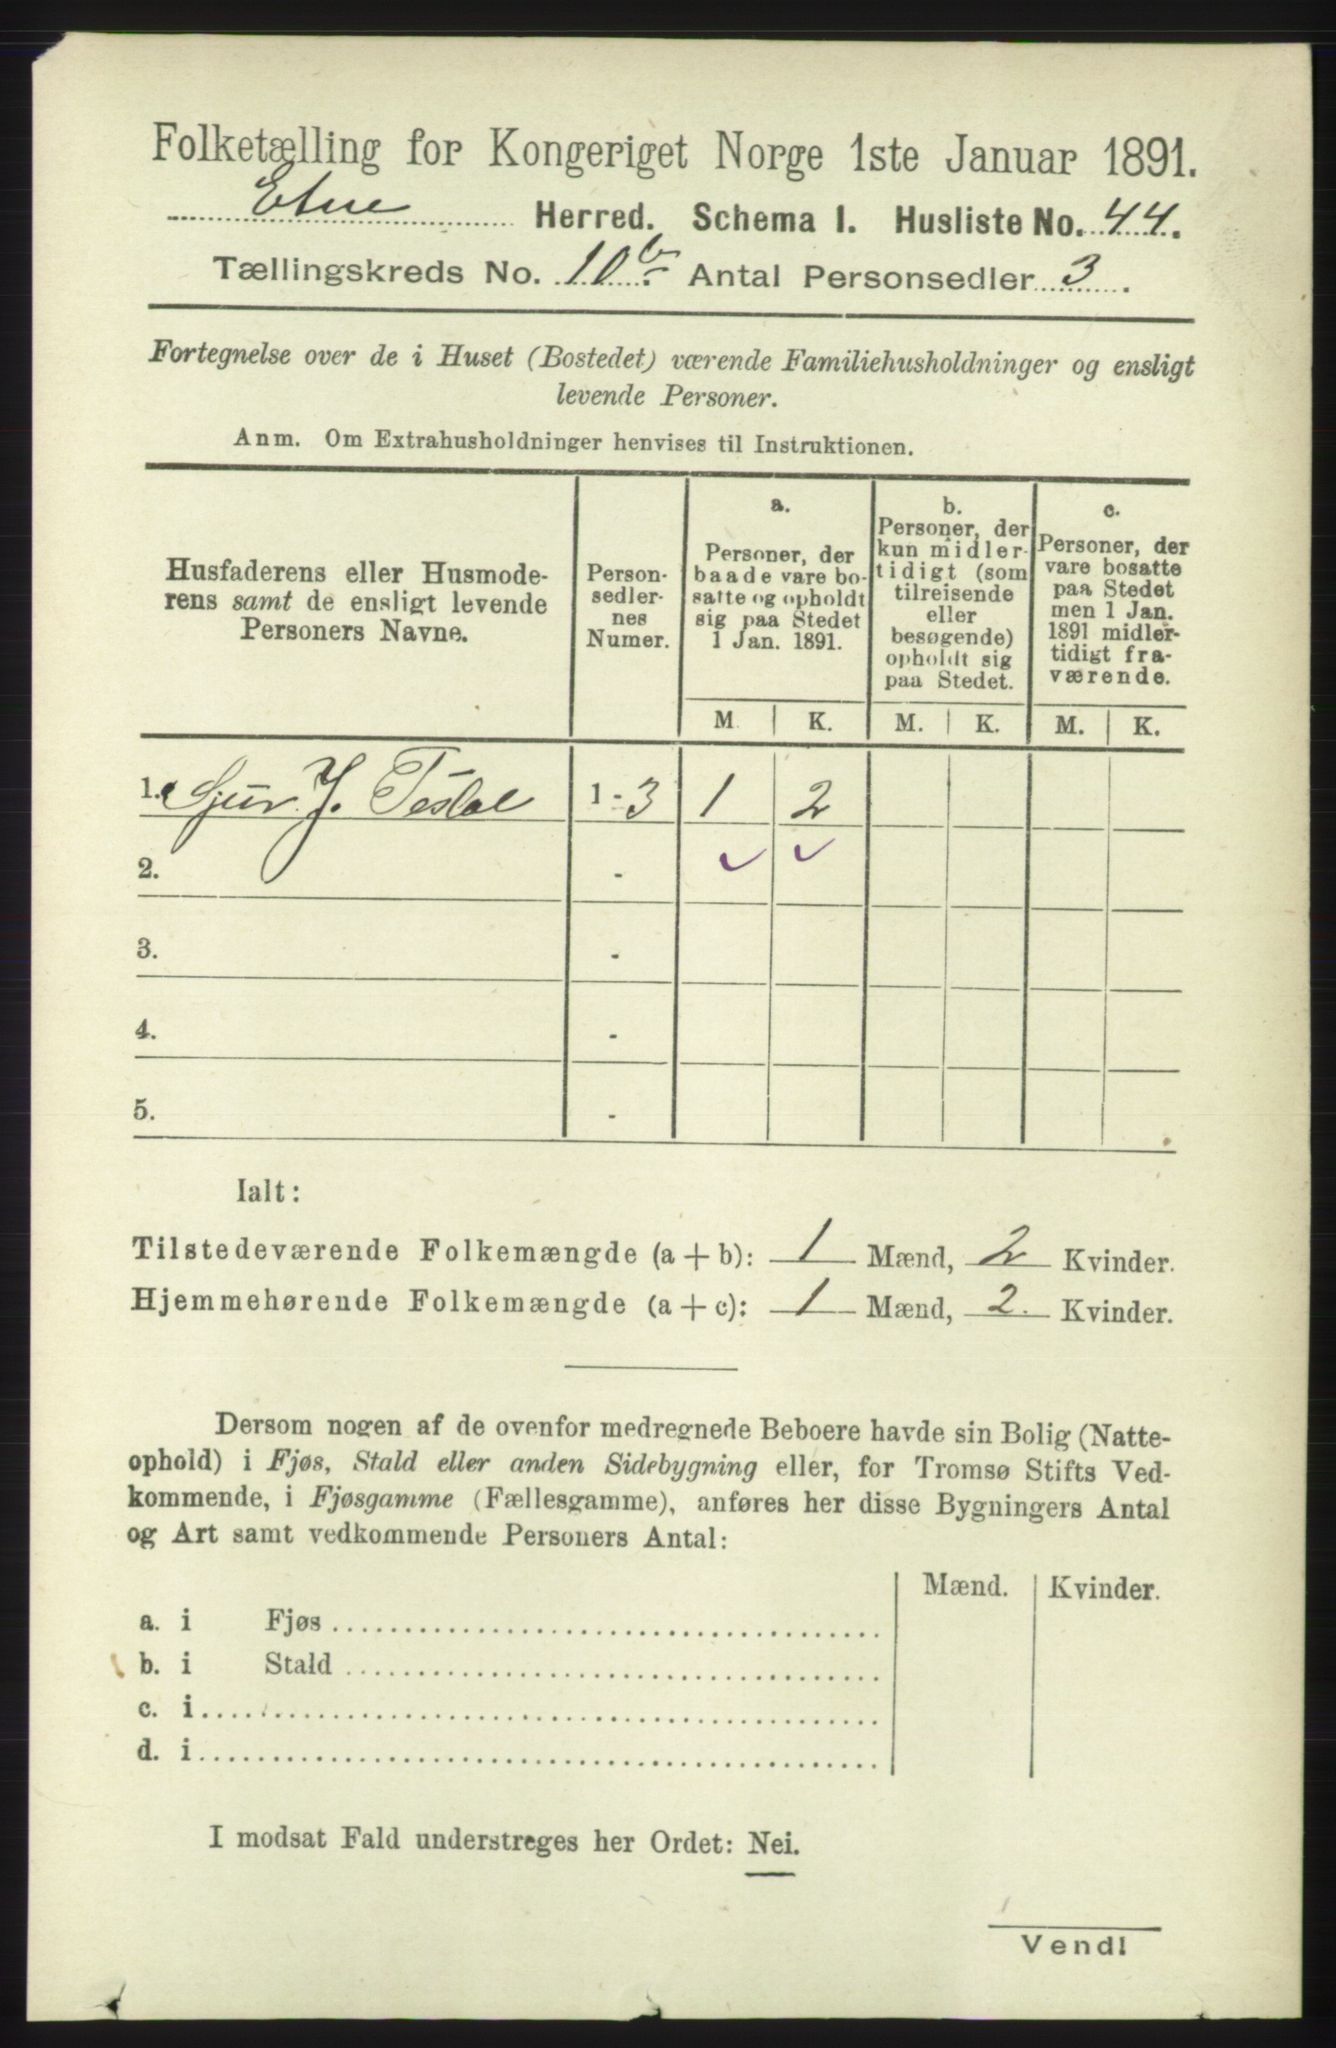 Folketælling for Kongeriget Norge 1ste Januar 1891.
Etne Herred. Schema I. Husliste No. 44.
Tællingskreds No. 10b. Antal Personsedler 3.
Fortegnelse over de i Huset (Bostedet) værende Familiehusholdninger og ensligt
levende Personer.
Anm. Om Extrahusholdninger henvises til Instruktionen.
Husfaderens eller Husmode-
rens samt de ensligt levende
Personers Navne.
Person-
sedler-
nes
Numer.
a.
Personer, der
baade vare bo-
satte og opholdt
sig paa Stedet
1 Jan. 1891.
b.
Personer, der
kun midler-
tidigt (som
tilreisende
eller
besøgende)
opholdt sig
paa Stedet.
c.
Personer, der
vare bosatte
paa Stedet
men 1 Jan.
1891 midler-
tidigt fra-
værende.
M. K. M. K. M. K.
1. Sjur J. 1 - 3 1 2
2. -
3. -
4. -
5. -
Ialt:
Tilstedeværende Folkemængde (a + b): 1 Mænd, 2 Kvinder.
Hjemmehørende Folkemængde (a + c): 1 Mænd, 2. Kvinder.
Dersom nogen af de ovenfor medregnede Beboere havde sin Bolig (Natte-
ophold) i Fjøs, Stald eller anden Sidebygning eller, for Tromsø Stifts Ved-
kommende, i Fjøsgamme (Fællesgamme), anføres her disse Bygningers Antal
og Art samt vedkommende Personers Antal:
Mænd. Kvinder.
a. i Fjøs
b. i Stald
c. i
d. i
I modsat Fald understreges her Ordet: Nei.
Vend!